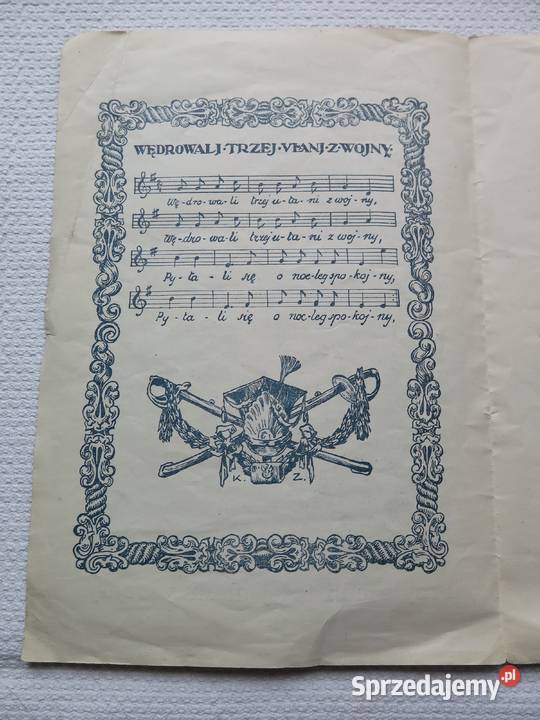 WĘDROWALJ·TRZEJ·VŁANJ·Z·WOJNY
Wę-dro-wa-li trzej u-ła-ni z woj-ny,
Wę-dro-wa-li trzej u-ła-ni z woj-ny,
Py-ta-li się o noc-leg spo-koj-ny,
Py-ta-li się o noc-leg spo-koj-ny,
K. Z.
Sprzedajemy.pl